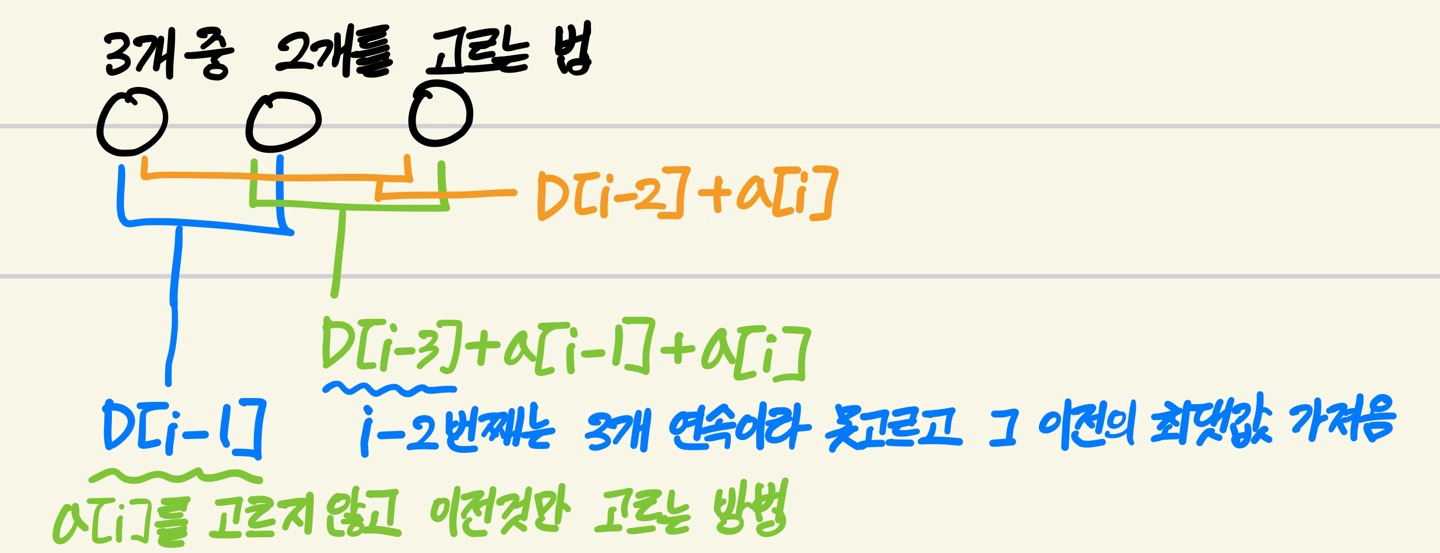 3개 중 2개를 고르는 법
D[i-2]+a[i]
D[i-3]+a[i-1]+a[i]
D[i-1]
i-2번째는 3개 연속이라 못고르고 그 이전의 최댓값 가져옴
a[i]를 고르지않고 이전것만 고르는 방법